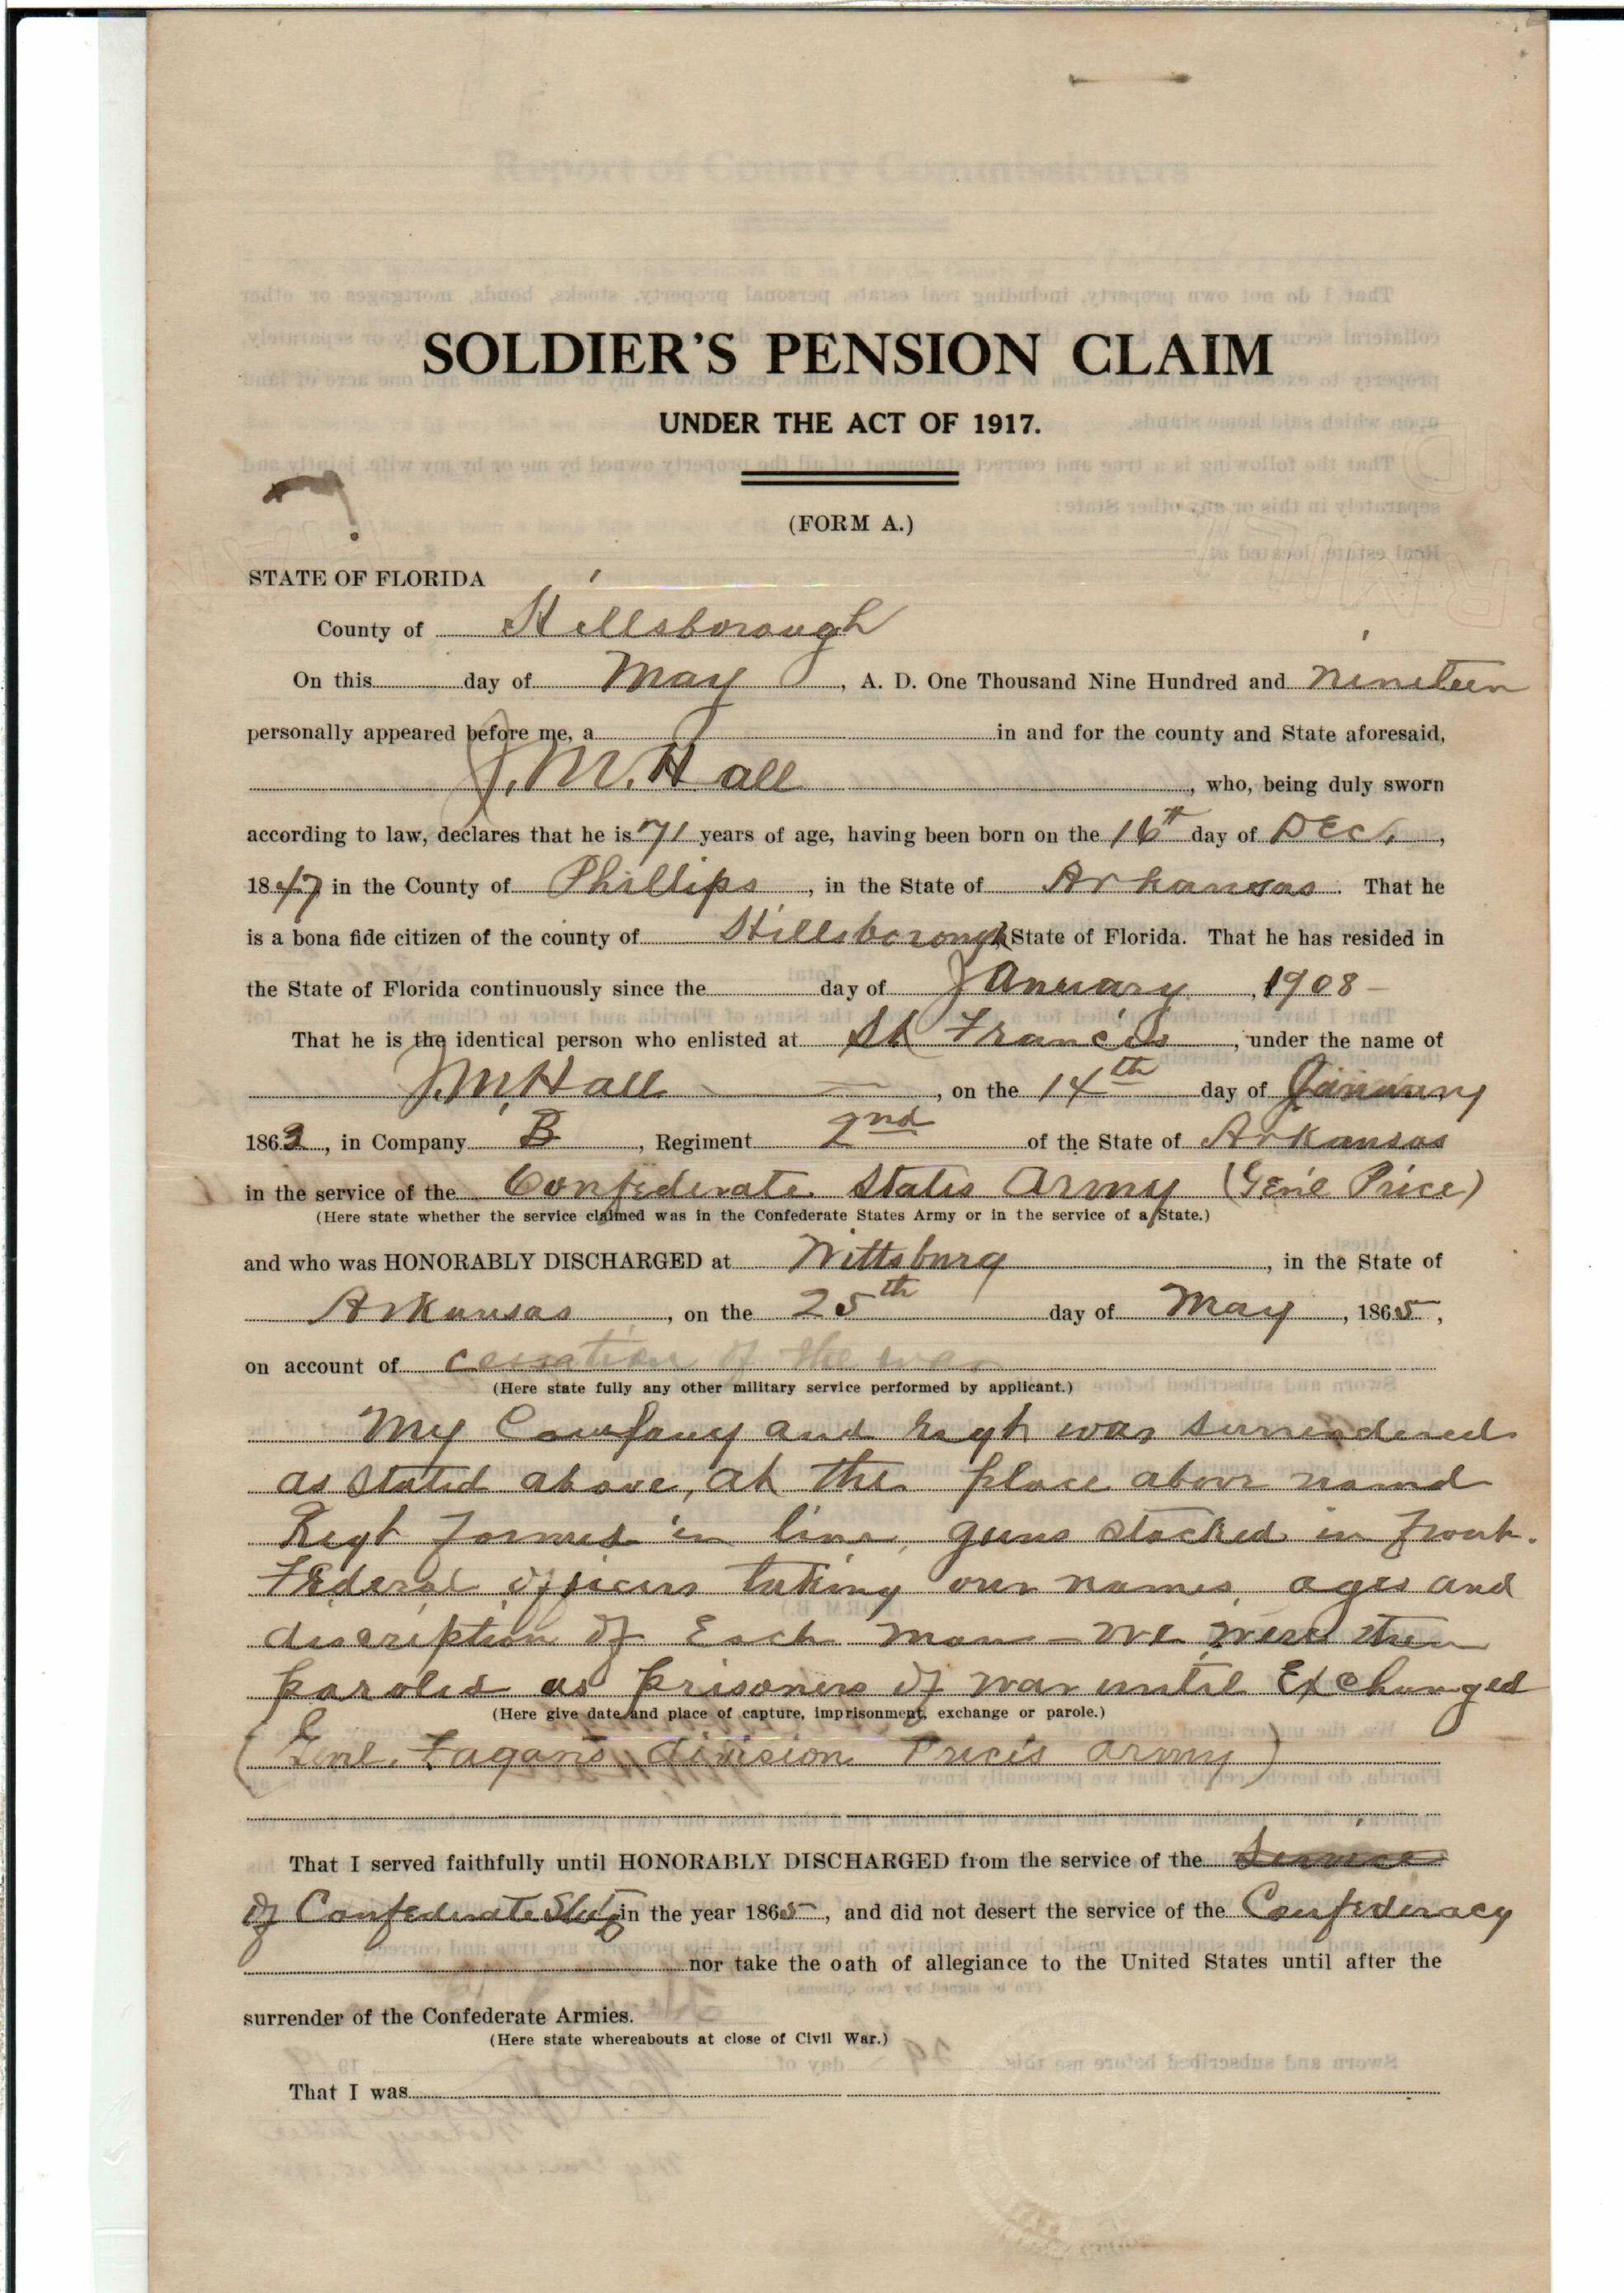 SOLDIER'S PENSION CLAIM
UNDER THE ACT OF 1917.
(FORM A.)
STATE OF FLORIDA
County of Hillsborough
On this day of May , A. D. One Thousand Nine Hundred and nineteen
personally appeared before me, a in and for the county and State aforesaid,
J. M. Hall , who, being duly sworn
according to law, declares that he is 71 years of age, having been born on the 16th day of Dec. ,
1847 in the County of Phillips , in the State of Arkansas . That he
is a bona fide citizen of the county of Hillsborough State of Florida. That he has resided in
the State of Florida continuously since the day of January , 1908 –
That he is the identical person who enlisted at St Francis , under the name of
J. M. Hall , on the 14th day of January
1863 , in Company B , Regiment 2nd of the State of Arkansas
in the service of the Confederate States Army (Genl Price)
(Here state whether the service claimed was in the Confederate States Army or in the service of a State.)
and who was HONORABLY DISCHARGED at Wittsburg , in the State of
Arkansas , on the 25th day of May , 1865 ,
on account of cessation of the war
(Here state fully any other military service performed by applicant.)
My Company and Regt was surrendered
as stated above, at the place above named
Regt formed in line, guns stacked in front.
Federal officers taking our names, ages and
discription of Each man – we were then
paroled as prisoners of war until Exchanged
(Here give date and place of capture, imprisonment, exchange or parole.)
(Genl. Fagans division Prices army)
That I served faithfully until HONORABLY DISCHARGED from the service of the Service
of Confederate States in the year 1865 , and did not desert the service of the Confederacy
nor take the oath of allegiance to the United States until after the
surrender of the Confederate Armies.
(Here state whereabouts at close of Civil War.)
That I was